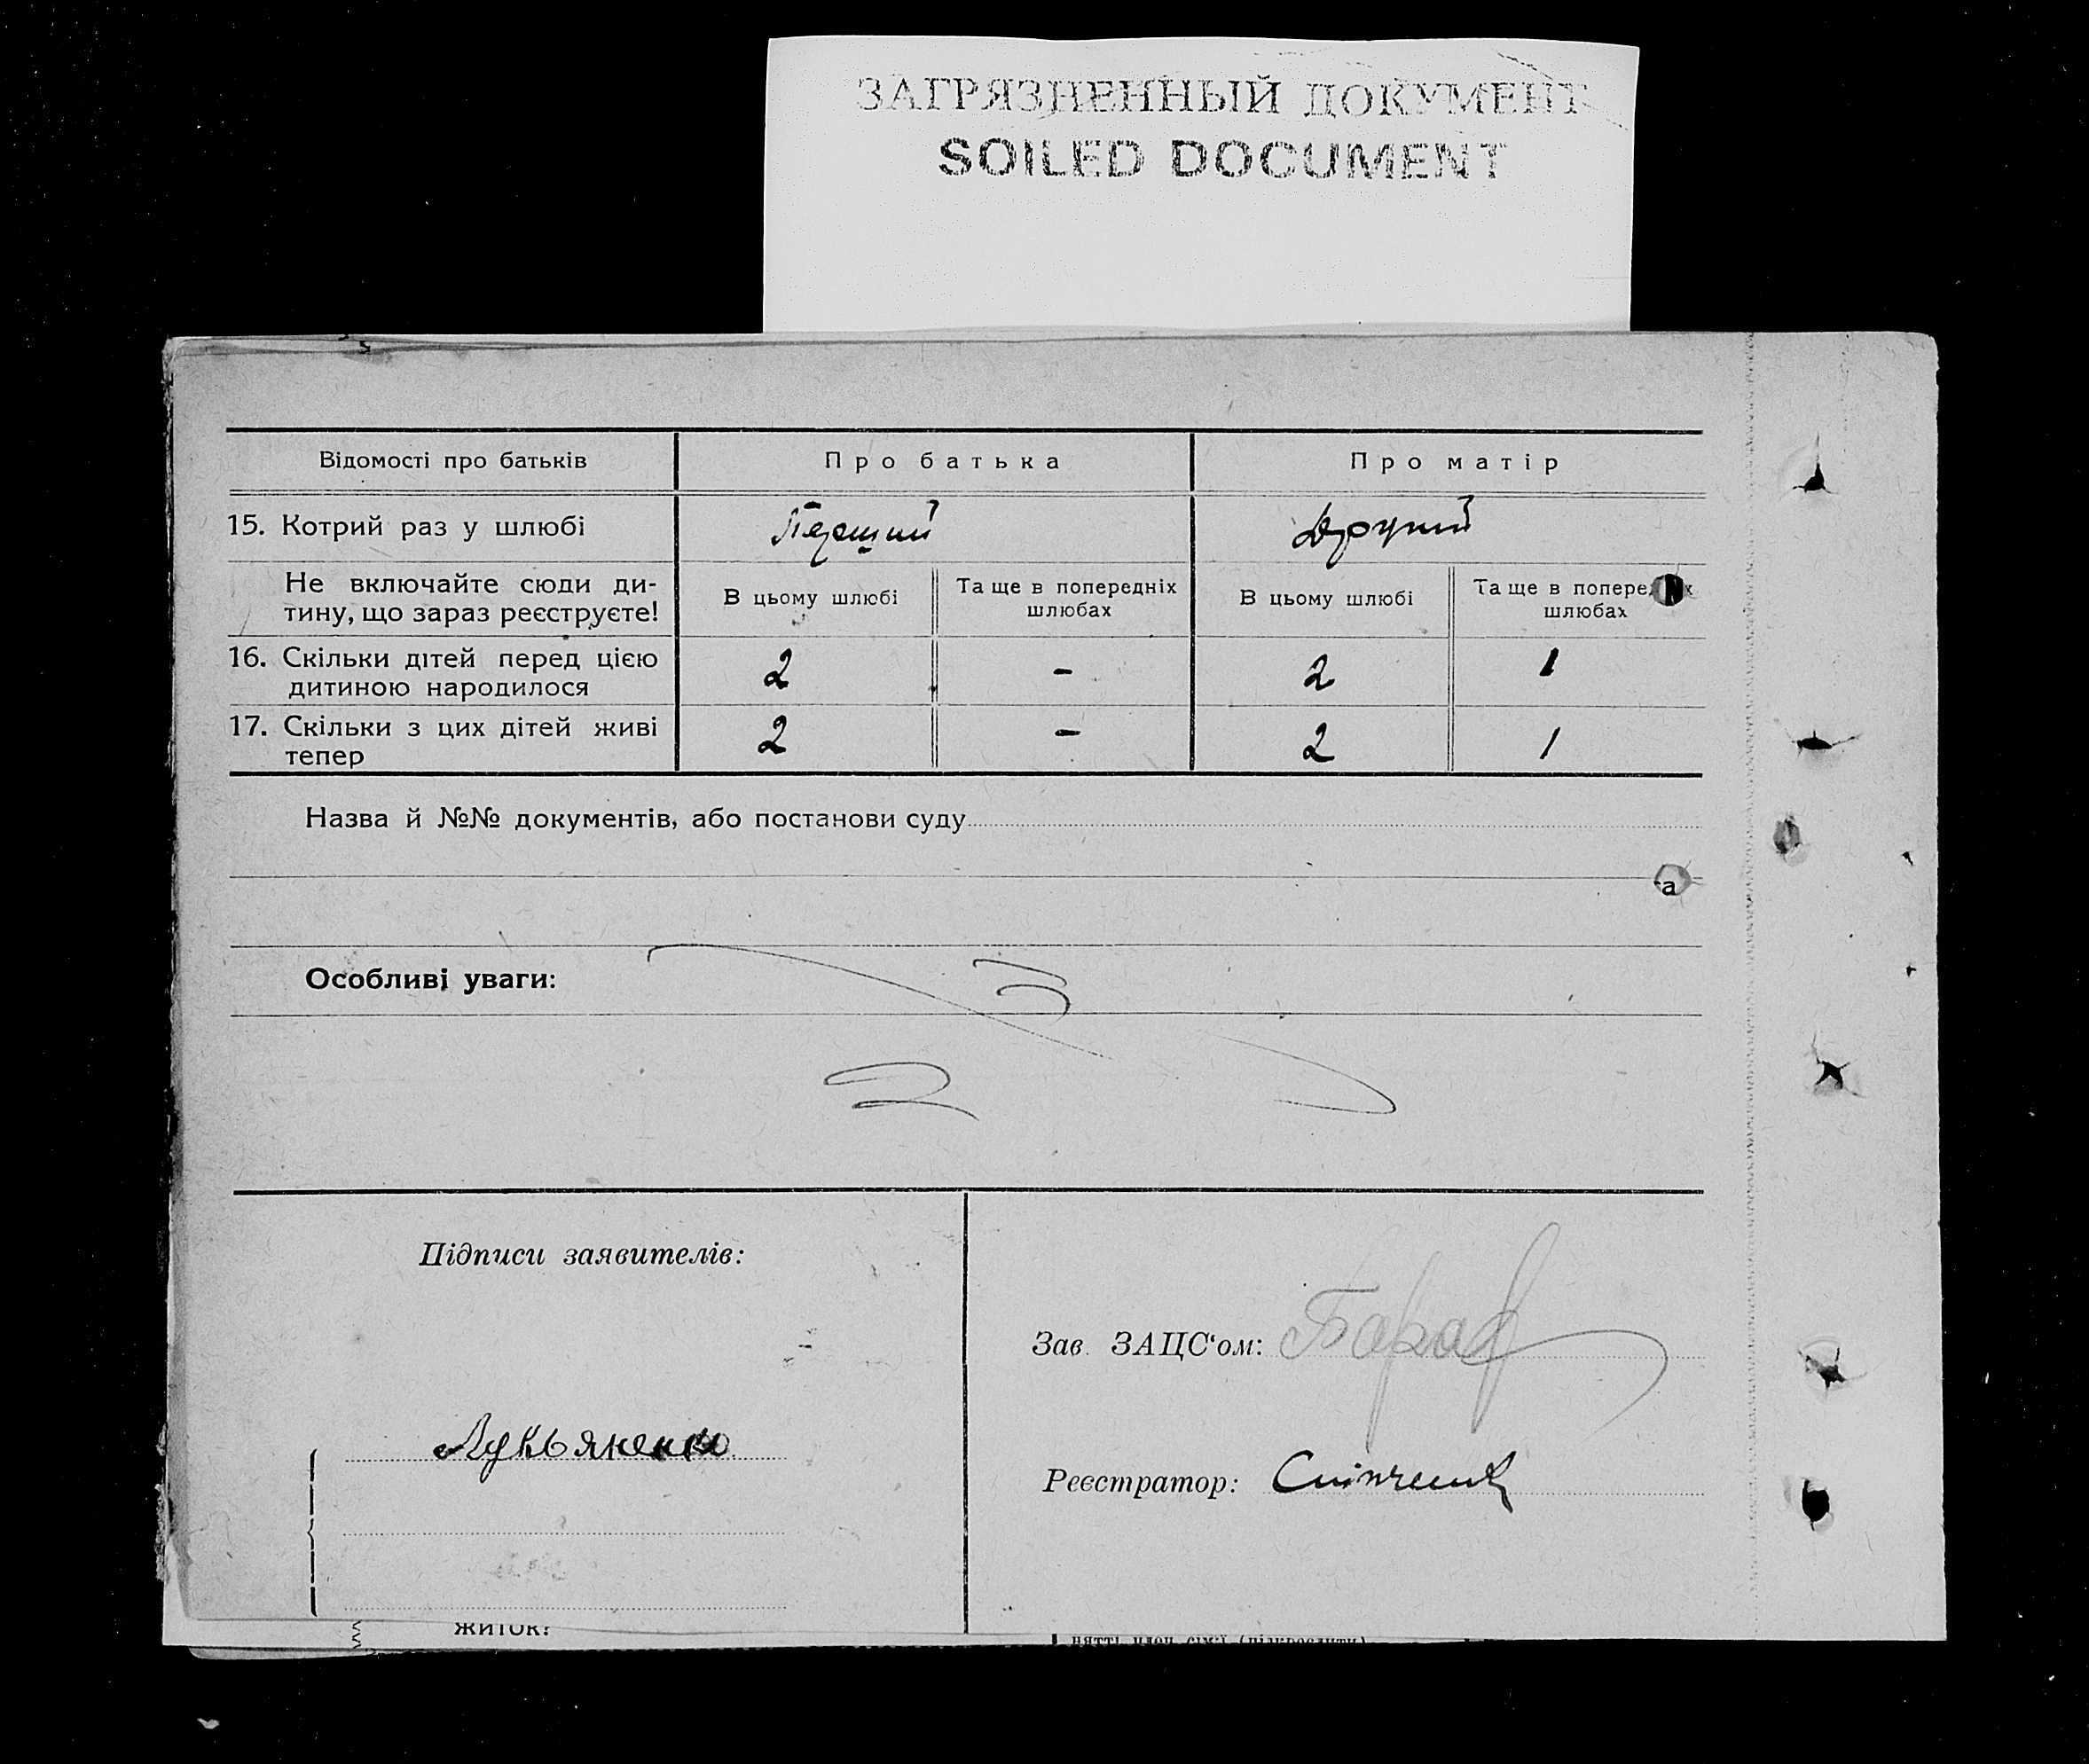 ЗАГРЯЗНЕННЫЙ ДОКУМЕНТ
SOILED DOCUMENT
Відомості про батьків
Про батька
Про матір
15. Котрий раз у шлюбі
Перший
Другий
Не включайте сюди ди-
тину, що зараз реєструєте!
В цьому шлюбі
Та ще в попередніх
шлюбах
В цьому шлюбі
Та ще в попере
шлюбах
16. Скільки дітей перед цією
дитиною народилося
2
-
2
1
17. Скільки з цих дітей живі
тепер
2
-
2
1
Назва й №№ документів, або постанови суду
а
Особливі уваги:
Підписи заявителів:
Зав. ЗАЦС'ом:
Лукьяненко
Реєстратор:
житок?